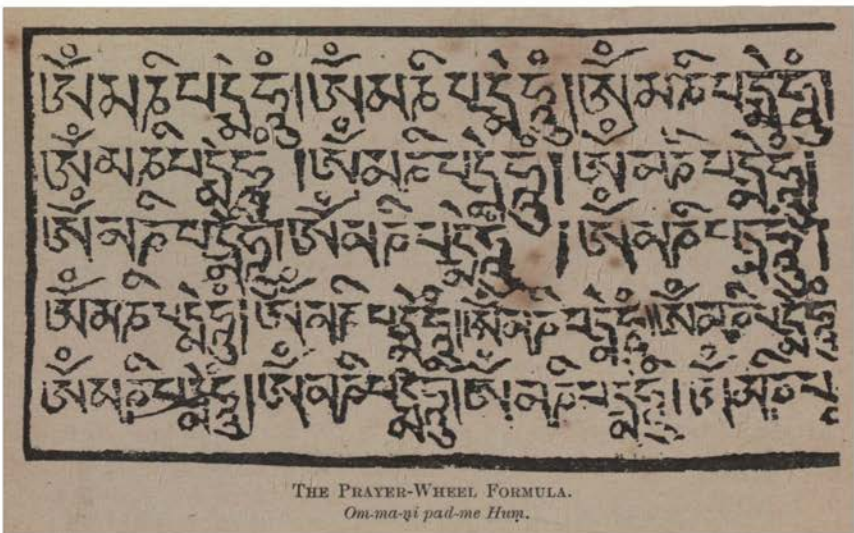 ཨོཾ་མ་ཎི་པདྨེ་ཧཱུཾ། ཨོཾ་མ་ཎི་པདྨེ་ཧཱུཾ། ཨོཾ་མ་ཎི་པདྨེ་ཧཱུཾ།
ཨོཾ་མ་ཎི་པདྨེ་ཧཱུཾ། ཨོཾ་མ་ཎི་པདྨེ་ཧཱུཾ། ཨོཾ་མ་ཎི་པདྨེ་ཧཱུཾ།
ཨོཾ་མ་ཎི་པདྨེ་ཧཱུཾ། ཨོཾ་མ་ཎི་པདྨེ་ཧཱུཾ། ཨོཾ་མ་ཎི་པདྨེ་ཧཱུཾ།
ཨོཾ་མ་ཎི་པདྨེ་ཧཱུཾ། ཨོཾ་མ་ཎི་པདྨེ་ཧཱུཾ། ཨོཾ་མ་ཎི་པདྨེ་ཧཱུཾ། ཨོཾ་མ་ཎི་པདྨེ་ཧཱུཾ
ཨོཾ་མ་ཎི་པདྨེ་ཧཱུཾ། ཨོཾ་མ་ཎི་པདྨེ་ཧཱུཾ། ཨོཾ་མ་ཎི་པདྨེ་ཧཱུཾ། ཨོཾ་མ་ཎི་པ
THE PRAYER-WHEEL FORMULA.
Om-ma-ṇi pad-me Huṃ.